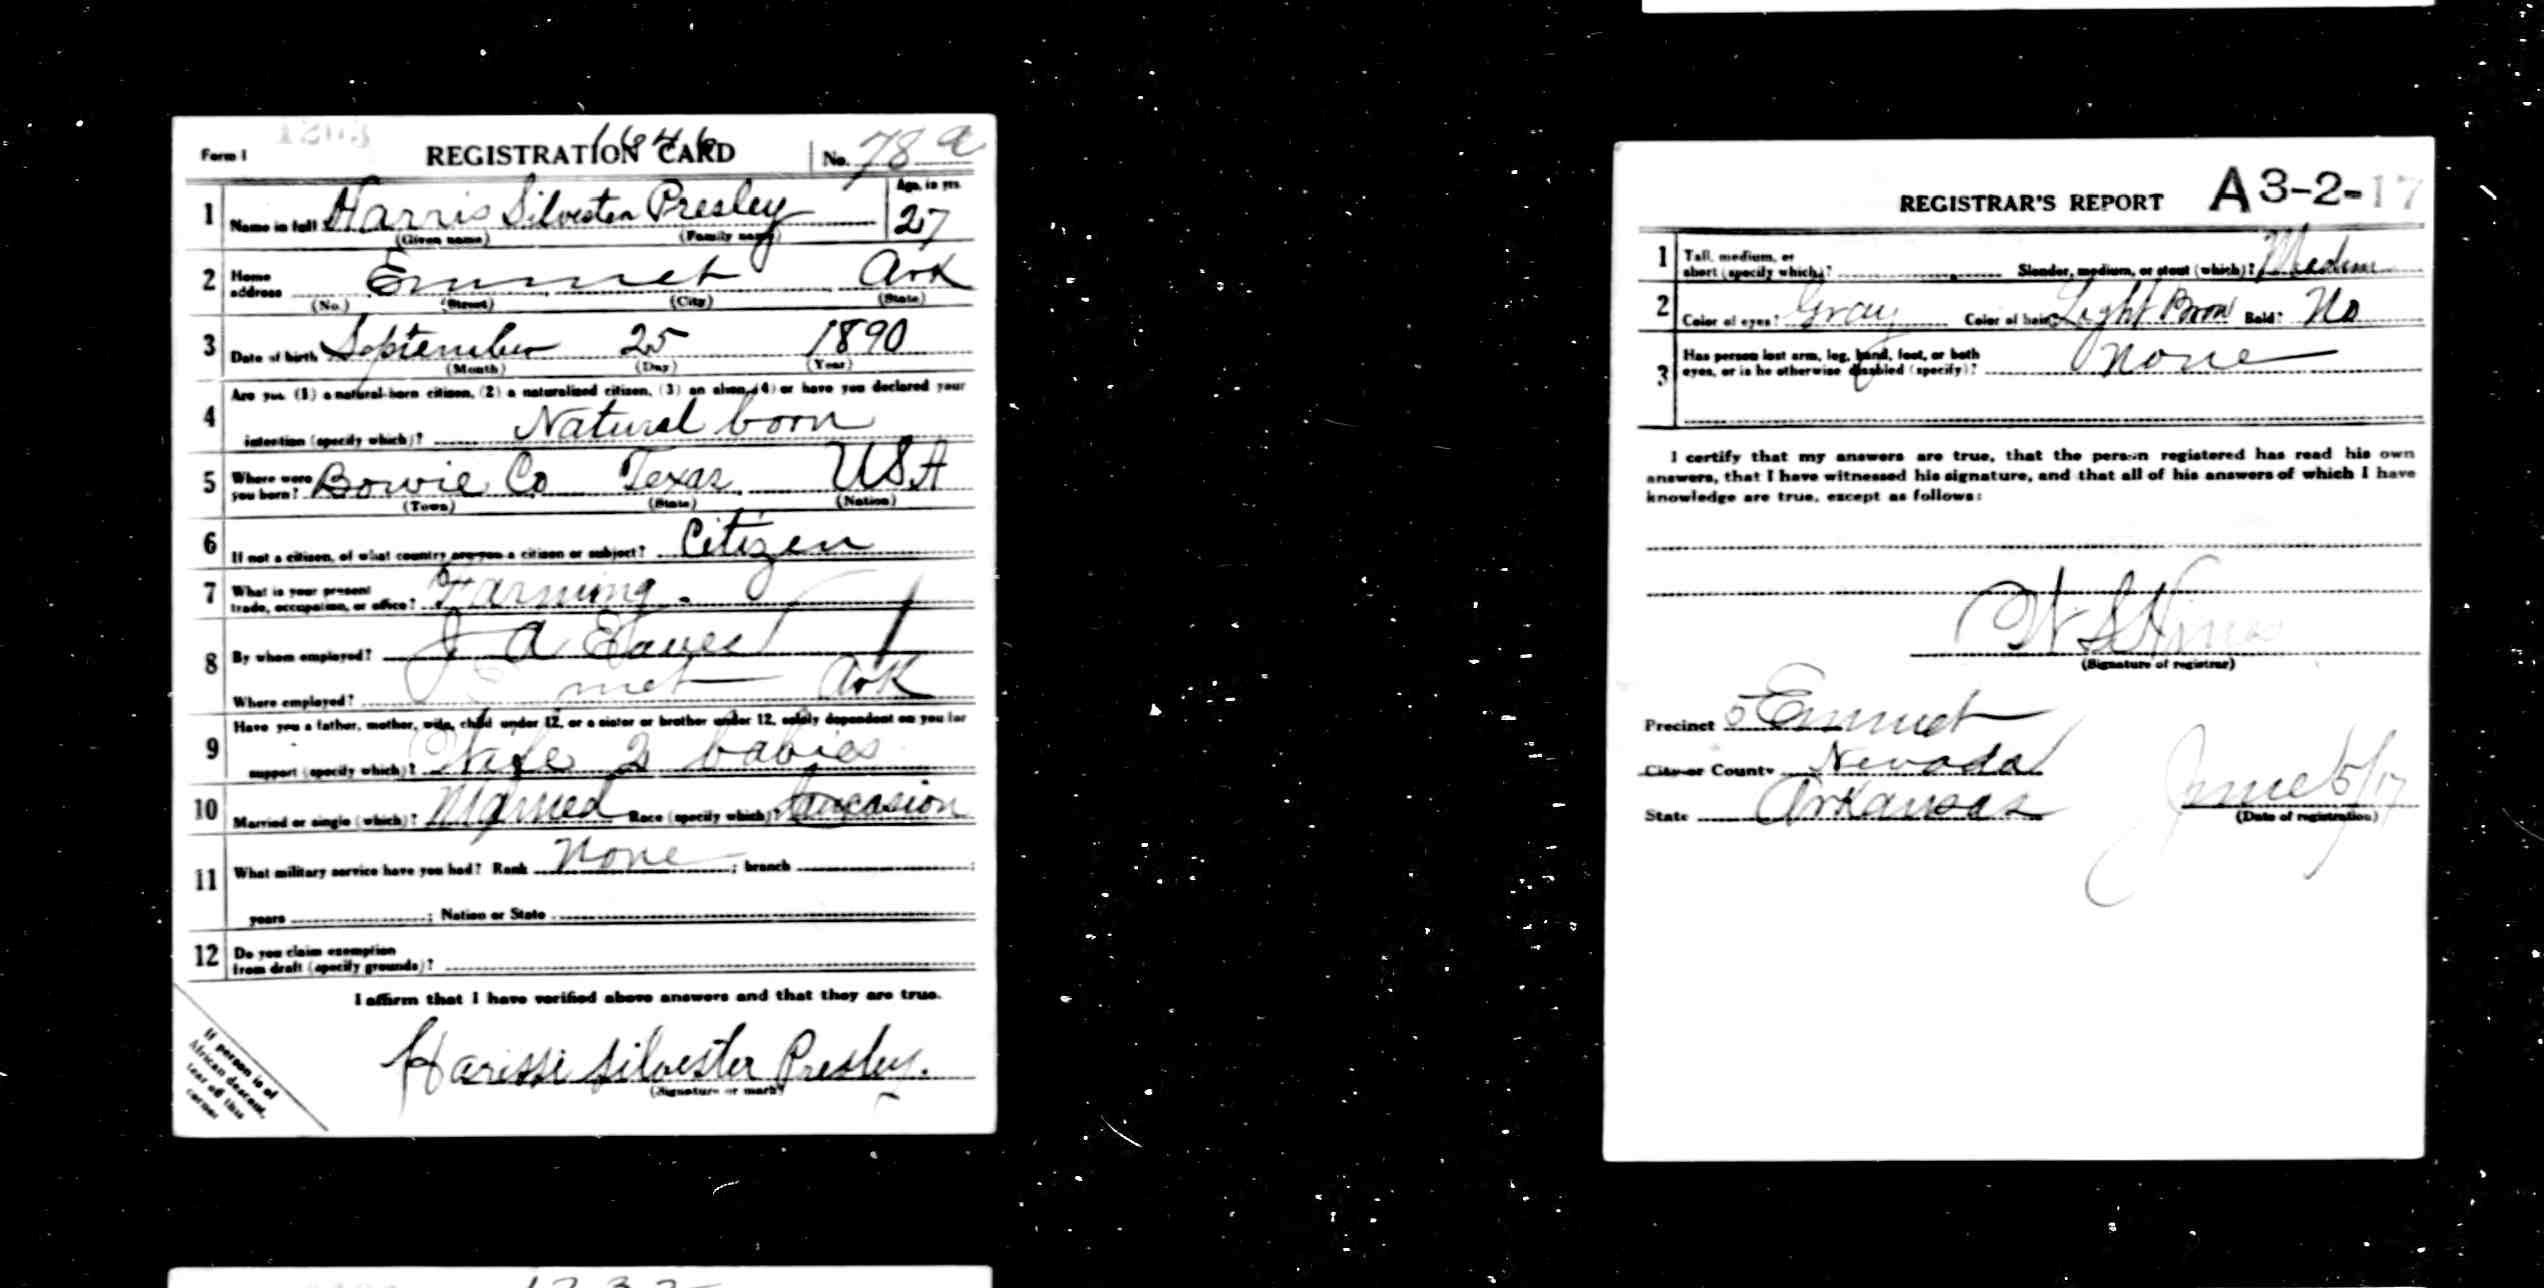 Form 1
1646
REGISTRATION CARD No. 78 a
1 Name in full Harris Silvester Presley Age, in yrs. 27
(Given name) (Family name)
2 Home address Emmet Ark
(No.) (Street) (City) (State)
3 Date of birth September 25 1890
(Month) (Day) (Year)
4 Are you (1) a natural-born citizen, (2) a naturalized citizen, (3) an alien, (4) or have you declared your
intention (specify which)? Natural born
5 Where were you born? Bowie Co Texas USA
(Town) (State) (Nation)
6 If not a citizen, of what country are you a citizen or subject? Citizen
7 What is your present trade, occupation, or office? Farming.
8 By whom employed? J A Eaves
Where employed? Emmet Ark
9 Have you a father, mother, wife, child under 12, or a sister or brother under 12, solely dependent on you for
support (specify which)? Wife 2 babies
10 Married or single (which)? Married Race (specify which)? Caucasion
11 What military service have you had? Rank None ; branch ;
years ; Nation or State
12 Do you claim exemption
from draft (specify grounds)?
I affirm that I have verified above answers and that they are true.
Harissi Silvester Presley.
(Signature or mark)
If person is of
African descent,
tear off this
corner
REGISTRAR'S REPORT A 3-2-17
1 Tall, medium, or
short (specify which)? Slender, medium, or stout (which)? Medium
2 Color of eyes? Gray Color of hair? Light Brow Bald? No
3 Has person lost arm, leg, hand, foot, or both
eyes, or is he otherwise disabled (specify)? None
I certify that my answers are true, that the person registered has read his own
answers, that I have witnessed his signature, and that all of his answers of which I have
knowledge are true, except as follows:
W S
(Signature of registrar)
Precinct 5 Emmet
City or County Nevada
State Arkansas June 5/17
(Date of registration)